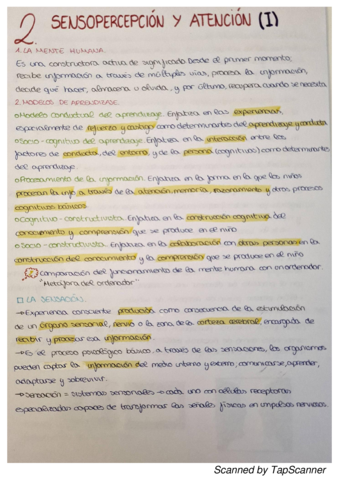 2. SENSOPERCEPCIÓN Y ATENCIÓN (I)
1. LA MENTE HUMANA.
Es una constructora activa de significado desde el primer momento,
recibe información a través de múltiples vías, procesa la información,
decide qué hacer, almacena o olvida, y por último, recupera cuando se necesita.
2. MODELOS DE APRENDIZAJE.
Modelo conductual del aprendizaje. Enfatiza en las experiencias,
especialmente de refuerzo y castigo como determinantes del aprendizaje y conducta
Socio-cognitivo del aprendizaje. Enfatiza en la interacción entre los
factores de conducta, del entorno, y de la persona (cognitivos) como determinantes
del aprendizaje.
Procesamiento de la información. Enfatiza en la forma en la que los niños
procesan la info a través de la atención, memoria, razonamiento y otros procesos
cognitivos básicos.
Cognitivo-constructivista. Enfatiza en la construcción cognitiva del
conocimiento y comprensión que se produce en el niño
Socio-constructivista. Enfatiza en la colaboración con otras personas en la
construcción del conocimiento y la comprensión que se produce en el niño
comparación del funcionamiento de la mente humana con un ordenador.
"Metáfora del ordenador"
LA SENSACIÓN.
→ Experiencia consciente producida como consecuencia de la estimulación
de un órgano sensorial, nervio o la zona de la corteza cerebral encargada de
recibir y procesar esa información
→ Es el proceso psicológico básico. a través de las sensaciones, los organismos
pueden captar la información del medio interno y externo, comunicarse, aprender,
adaptarse y sobrevivir.
→ sensación = sistemas sensoriales → cada uno con células receptoras
especializadas capaces de transformar las señales físicas en impulsos nerviosos.
Scanned by TapScanner